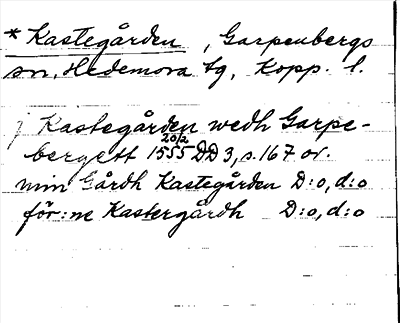 * Kastegården, Garpenbergs
sn, Hedemora tg, Kopp. l.
j Kastegården wedh Garpe-
bergett 1555 20/2 DD 3, s. 167 or.
min Gårdh Kastegården D:o, d:o
för:ne Kastergårdh D:o, d:o